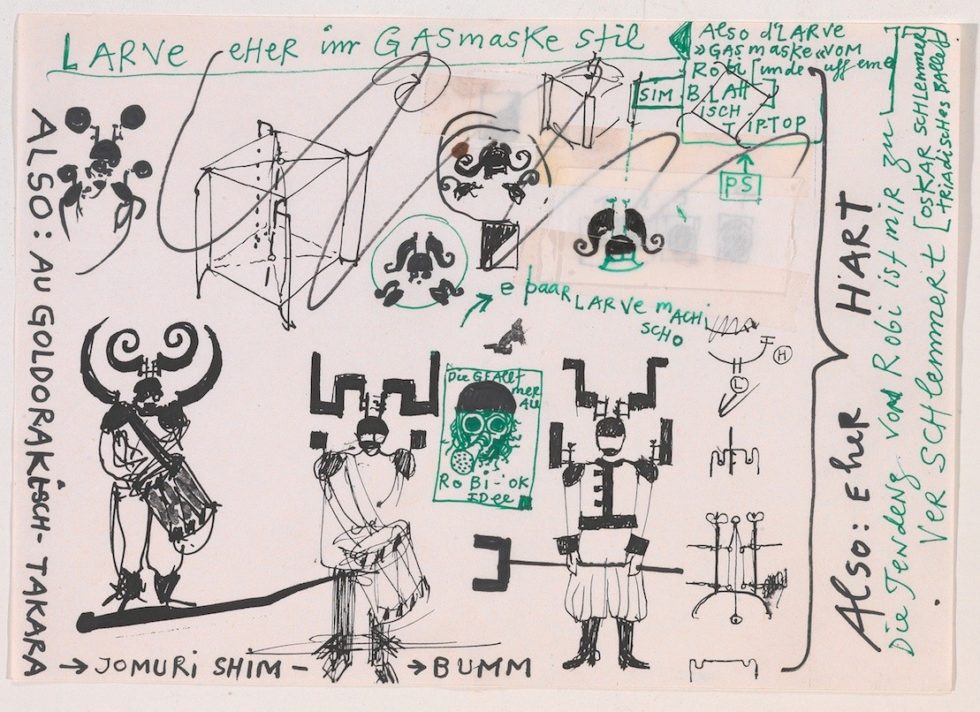 LARVE eHeR im GASmaske stil
Also d'LARVE
»GASmaske« VOM
Robi [unde uff eme
BLATT]
SIM
ISCH
TIPTOP
PS
ALSO: AU GOLDORAKisch-TAKARA
e paar LARVE mACHi
SCHO
H
L
Die GFALLT
mer
AU
RoBi-OK
IDee
→ JOMURi SHiM -
→ BUMM
Also: eHer HART
Die Tendenz vom Robi ist mir zu
VerSCHlemmert [OSKAR SCHlemmer
TRiADiSCHES BALLett]